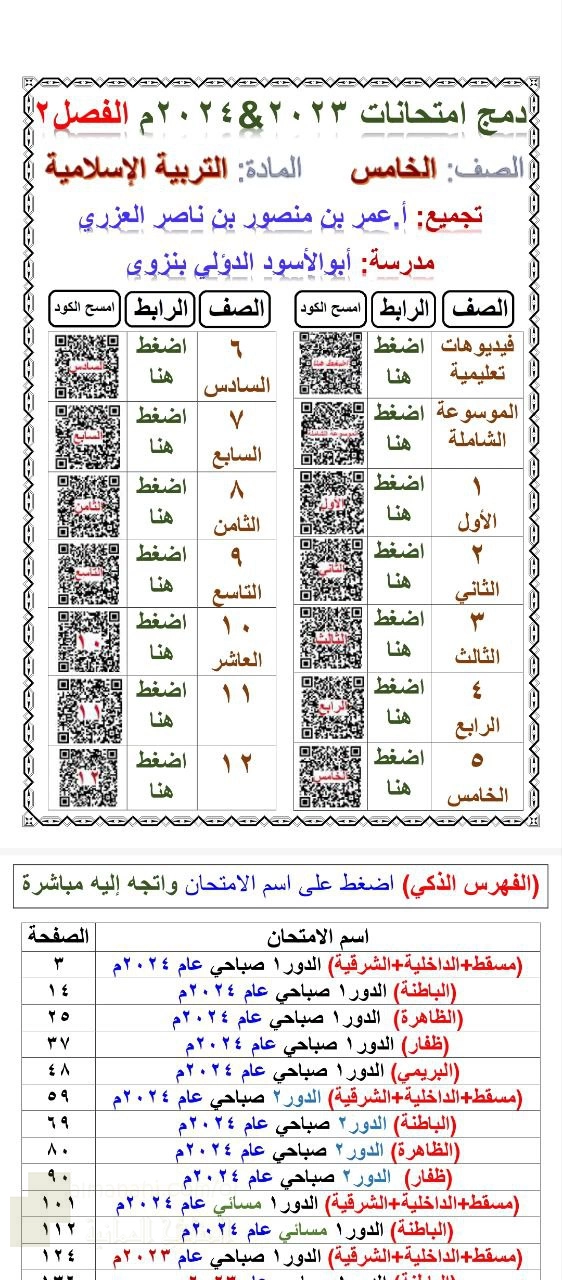 دمج امتحانات ٢٠٢٣&٢٠٢٤م الفصل٢
الصف: الخامس المادة: التربية الإسلامية
تجميع: أ.عمر بن منصور بن ناصر العزري
مدرسة: أبوالأسود الدؤلي بنزوى
الصف الرابط امسح الكود الصف الرابط امسح الكود
فيديوهات تعليمية اضغط هنا اضغط هنا ٦ السادس اضغط هنا السادس
الموسوعة الشاملة اضغط هنا الموسوعة الشاملة ٧ السابع اضغط هنا السابع
١ الأول اضغط هنا الأول ٨ الثامن اضغط هنا الثامن
٢ الثاني اضغط هنا الثاني ٩ التاسع اضغط هنا التاسع
٣ الثالث اضغط هنا الثالث ١٠ العاشر اضغط هنا ١٠
٤ الرابع اضغط هنا الرابع ١١ اضغط هنا ١١
٥ الخامس اضغط هنا الخامس ١٢ اضغط هنا ١٢
(الفهرس الذكي) اضغط على اسم الامتحان واتجه إليه مباشرة
اسم الامتحان الصفحة
(مسقط+الداخلية+الشرقية) الدور١ صباحي عام ٢٠٢٤م ٣
(الباطنة) الدور١ صباحي عام ٢٠٢٤م ١٤
(الظاهرة) الدور١ صباحي عام ٢٠٢٤م ٢٥
(ظفار) الدور١ صباحي عام ٢٠٢٤م ٣٧
(البريمي) الدور١ صباحي عام ٢٠٢٤م ٤٨
(مسقط+الداخلية+الشرقية) الدور٢ صباحي عام ٢٠٢٤م ٥٩
(الباطنة) الدور٢ صباحي عام ٢٠٢٤م ٦٩
(الظاهرة) الدور٢ صباحي عام ٢٠٢٤م ٨٠
(ظفار) الدور٢ صباحي عام ٢٠٢٤م ٩٠
(مسقط+الداخلية+الشرقية) الدور١ مسائي عام ٢٠٢٤م ١٠١
(الباطنة) الدور١ مسائي عام ٢٠٢٤م ١١٢
(مسقط+الداخلية+الشرقية) الدور١ صباحي عام ٢٠٢٣م ١٢٤